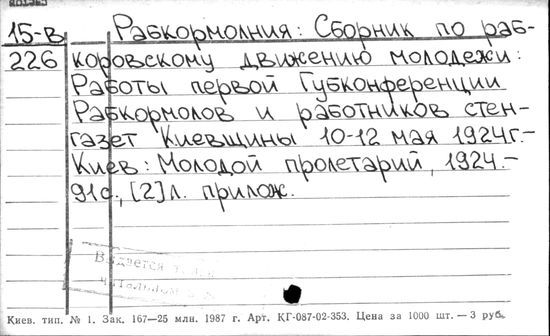 15-В Рабкормолния: Сборник по раб-
226 коровскому движению молодежи:
Работы первой Губконференции
Рабкормолов и работников стен-
газет Киевщины 10-12 мая 1924г.-
Киев: Молодой пролетарий, 1924.-
91с., [2]л. прилож.
Выдается
Киев. тип. № 1. Зак. 167—25 млн. 1987 г. Арт. КГ-087-02-353. Цена за 1000 шт. — 3 руб.